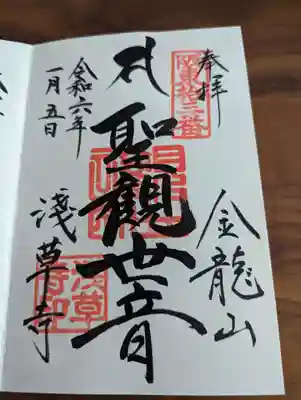 奉拝
坂東拾三番
金龍山
聖観世音
浅草寺印
淺草寺
令和六年
一月五日